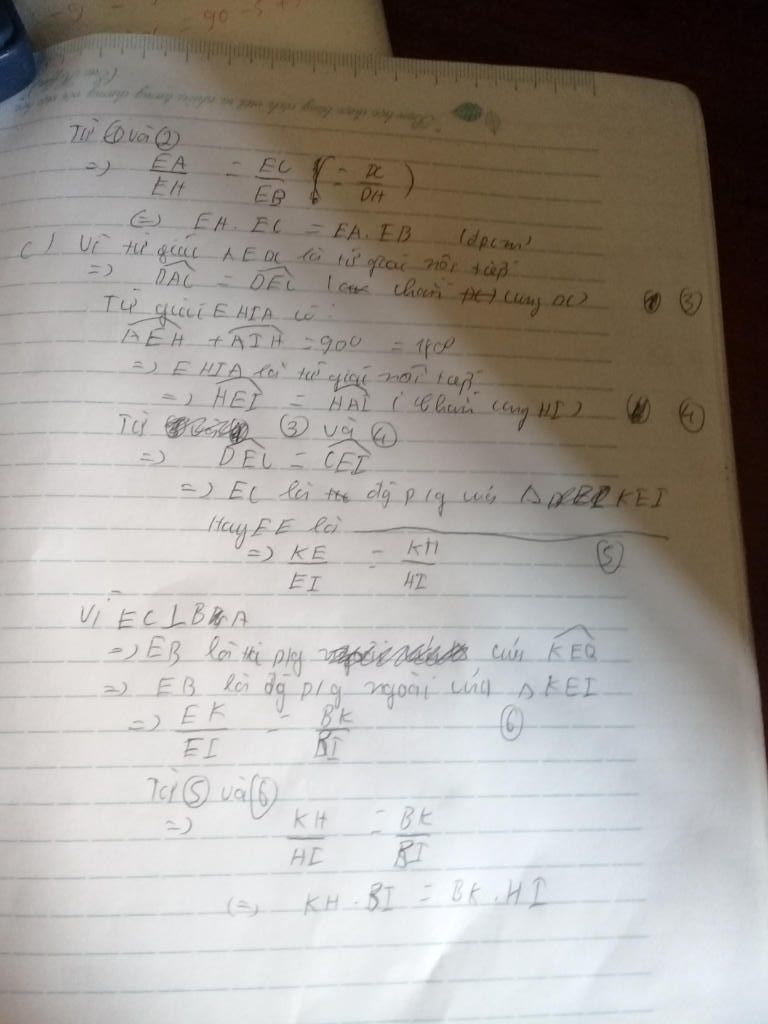 Từ ① và ②
=> EA/EH = EC/EB (= DC/DH)
<=> EH.EC = EA.EB (đpcm)
c) Vì tứ giác AEDC là tứ giác nội tiếp
=> DAC = DEC ( chắn cung DC) ③
Tứ giác EHIA có:
AEH + AIH = 900 = 180
=> EHIA là tứ giác nội tiếp
=> HEI = HAI ( chắn cung HI) ④
Từ ③ và ④
=> DEC = CEI
=> EC là đg p/g của Δ KEI
Hay EE là
=> KE/EI = KH/HI ⑤
Vì EC⊥BA
=> EB là p/g của KEQ
=> EB là đg p/g ngoài của Δ KEI
=> EK/EI = BK/BI ⑥
Từ ⑤ và ⑥
=> KH/HI = BK/BI
(=) KH.BI = BK.HI